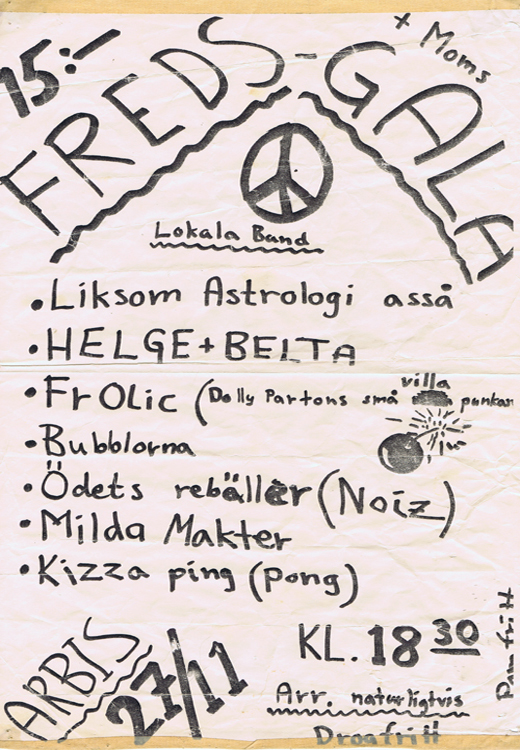 15:-
FREDS-GALA
+ Moms
Lokala Band
• Liksom Astrologi asså
• HELGE+BELTA
• FrOlic (Dolly Partons små villa punkar
• Bubblorna
• Ödets rebäller (Noiz)
• Milda Makter
• Kizza ping (pong)
ARBIS
27/11
KL. 18 30
Arr. naturligtvis
Drogfritt